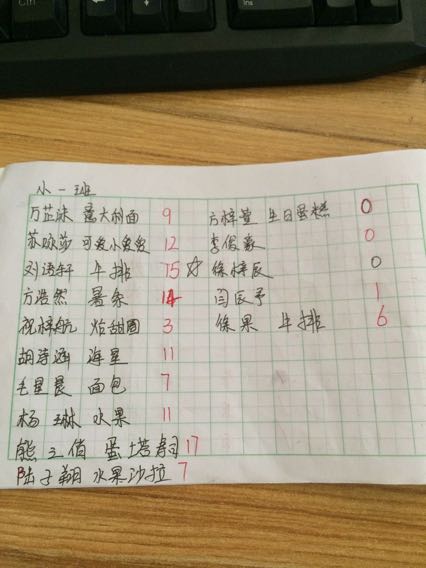 小一班
万芷沫 意大利面 9
苏咏莎 可爱小兔兔 12
刘语轩 牛排 15 ☆
方浩然 薯条 14
祝梓航 炸甜圈 3
胡诗涵 海星 11
毛星晨 面包 7
杨 琳 水果 11
熊立俏 蛋塔寿司 17
陆子翔 水果沙拉 7
方梓萱 生日蛋糕 0
李俊豪 0
徐梓辰 0
闫辰予 1
徐果 牛排 6
Ctrl
Ins